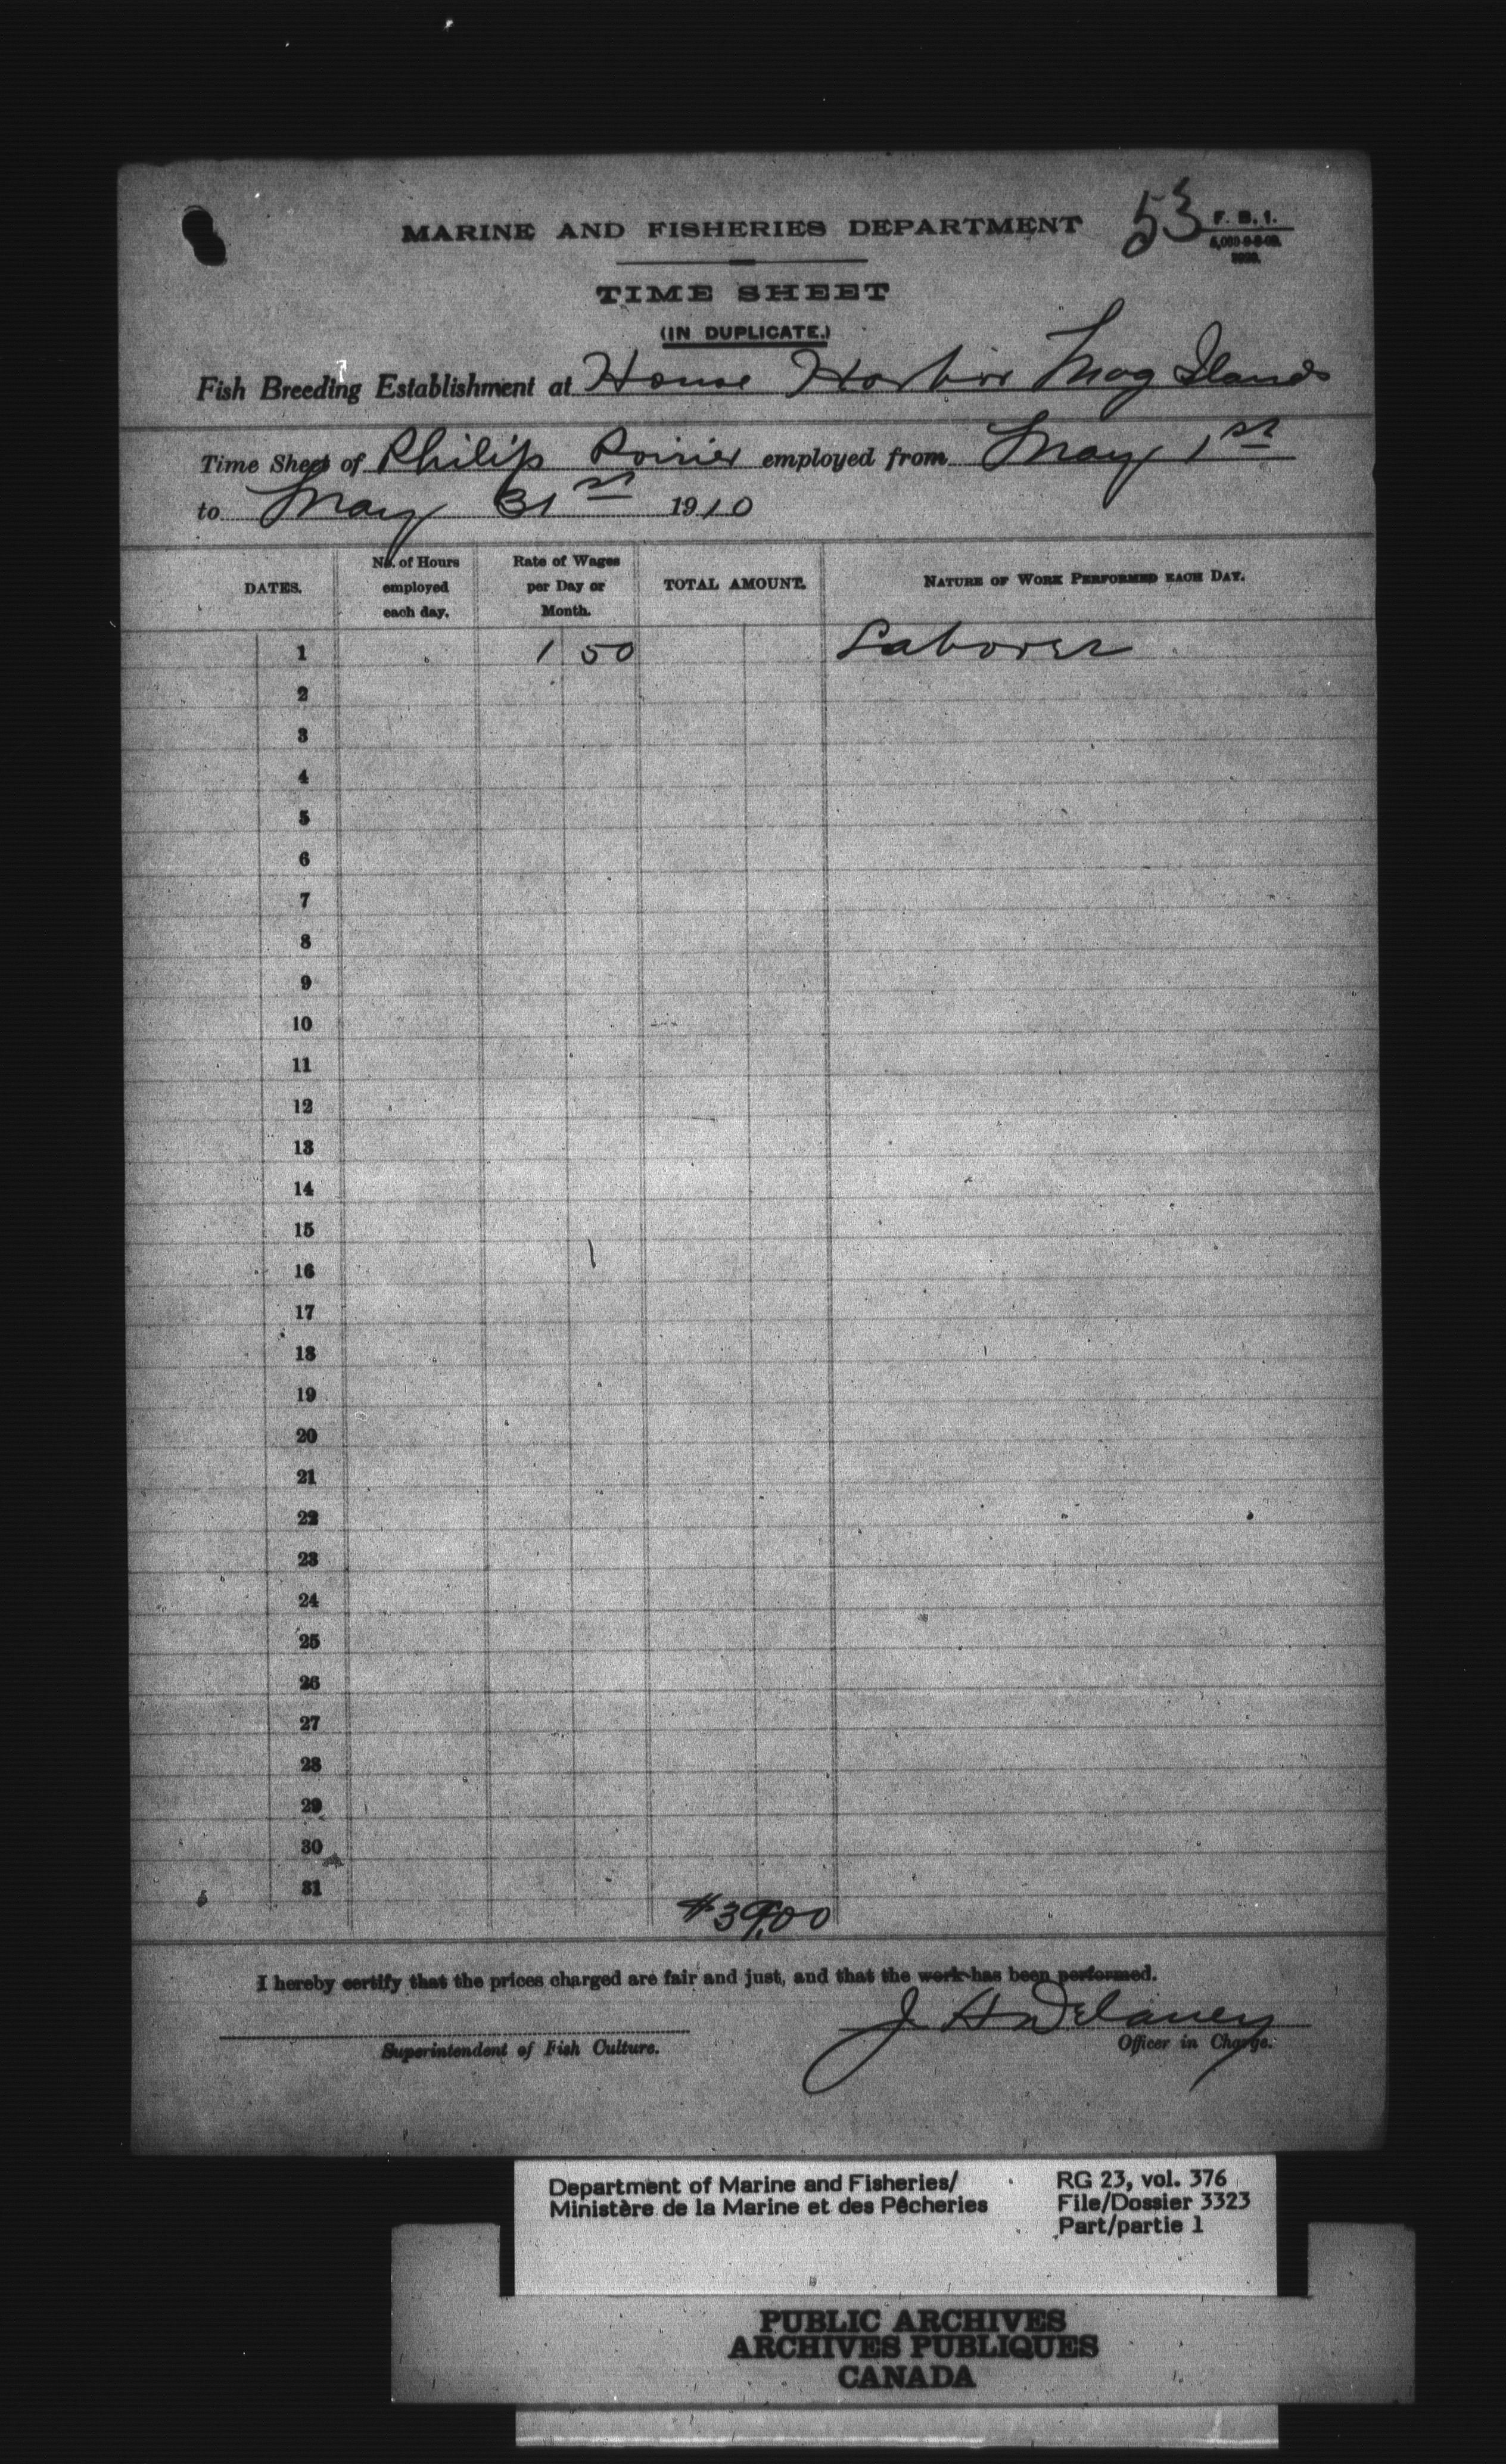 MARINE AND FISHERIES DEPARTMENT
53
F. B. 1.
TIME SHEET
(IN DUPLICATE.)
Fish Breeding Establishment at House Harbor Mag Islands
Time Sheet of Philip Poirier employed from May 1st
to May 31st 1910
DATES. No. of Hours employed each day. Rate of Wages per Day or Month. TOTAL AMOUNT. NATURE OF WORK PERFORMED EACH DAY.
1 1 50 Laborer
2
3
4
5
6
7
8
9
10
11
12
13
14
15
16
17
18
19
20
21
22
23
24
25
26
27
28
29
30
31
#39.00
I hereby certify that the prices charged are fair and just, and that the work has been performed.
J H Delaney
Superintendent of Fish Culture. Officer in Charge.
Department of Marine and Fisheries/ RG 23, vol. 376
Ministère de la Marine et des Pêcheries File/Dossier 3323
Part/partie 1
PUBLIC ARCHIVES
ARCHIVES PUBLIQUES
CANADA